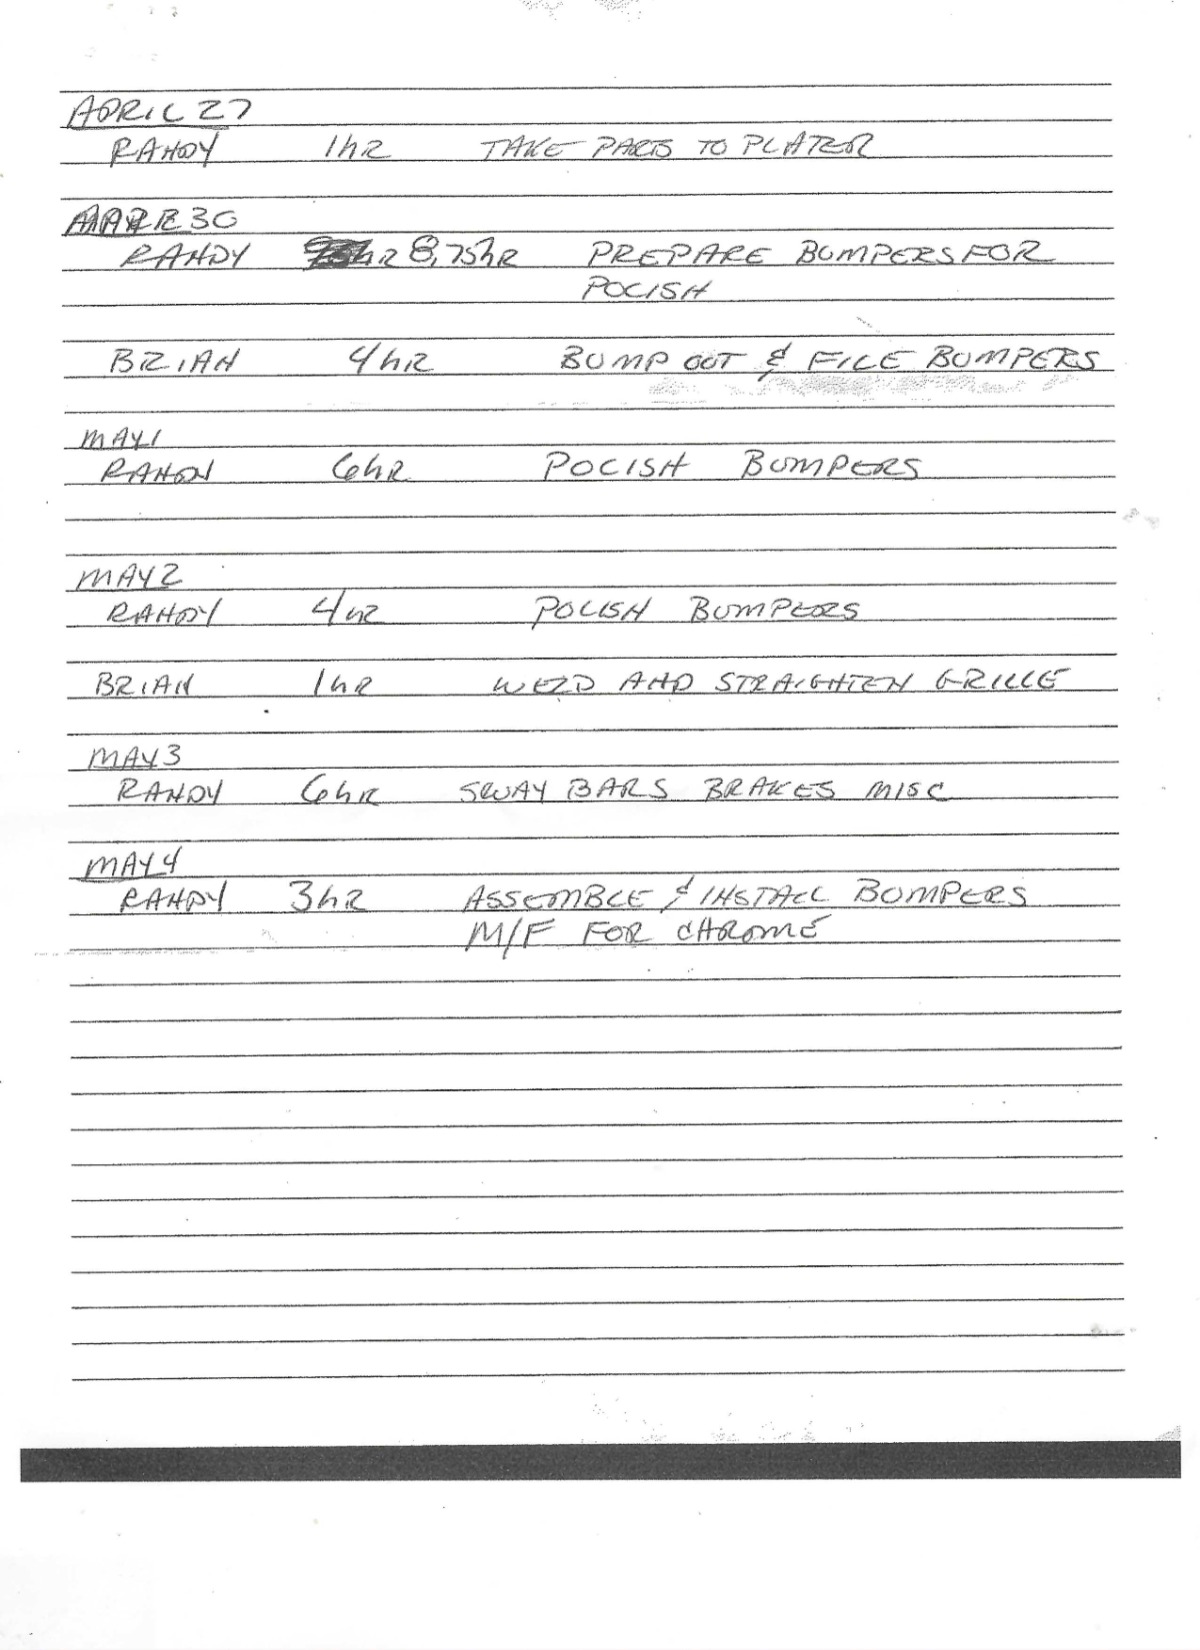 APRIL 27
RANDY 1hR TAKE PARTS TO PLATER
30
RANDY hR 8.75hR PREPARE BUMPERS FOR
POLISH
BRIAN 4hR BUMP OUT & FILE BUMPERS
MAY 1
RANDY 6hR POLISH BUMPERS
MAY 2
RANDY 4hR POLISH BUMPERS
BRIAN 1hR WELD AND STRAIGHTEN GRILLE
MAY 3
RANDY 6hR SWAY BARS BRAKES MISC
MAY 4
RANDY 3hR ASSEMBLE & INSTALL BUMPERS
M/F FOR CHROME